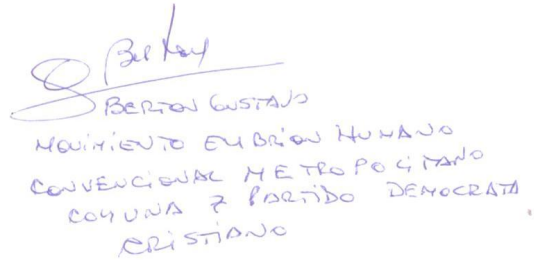 BERTON GUSTAVO
MOVIMIENTO EMBRION HUMANO
CONVENCIONAL METROPOLITANO
COMUNA 7 PARTIDO DEMOCRATA
CRISTIANO